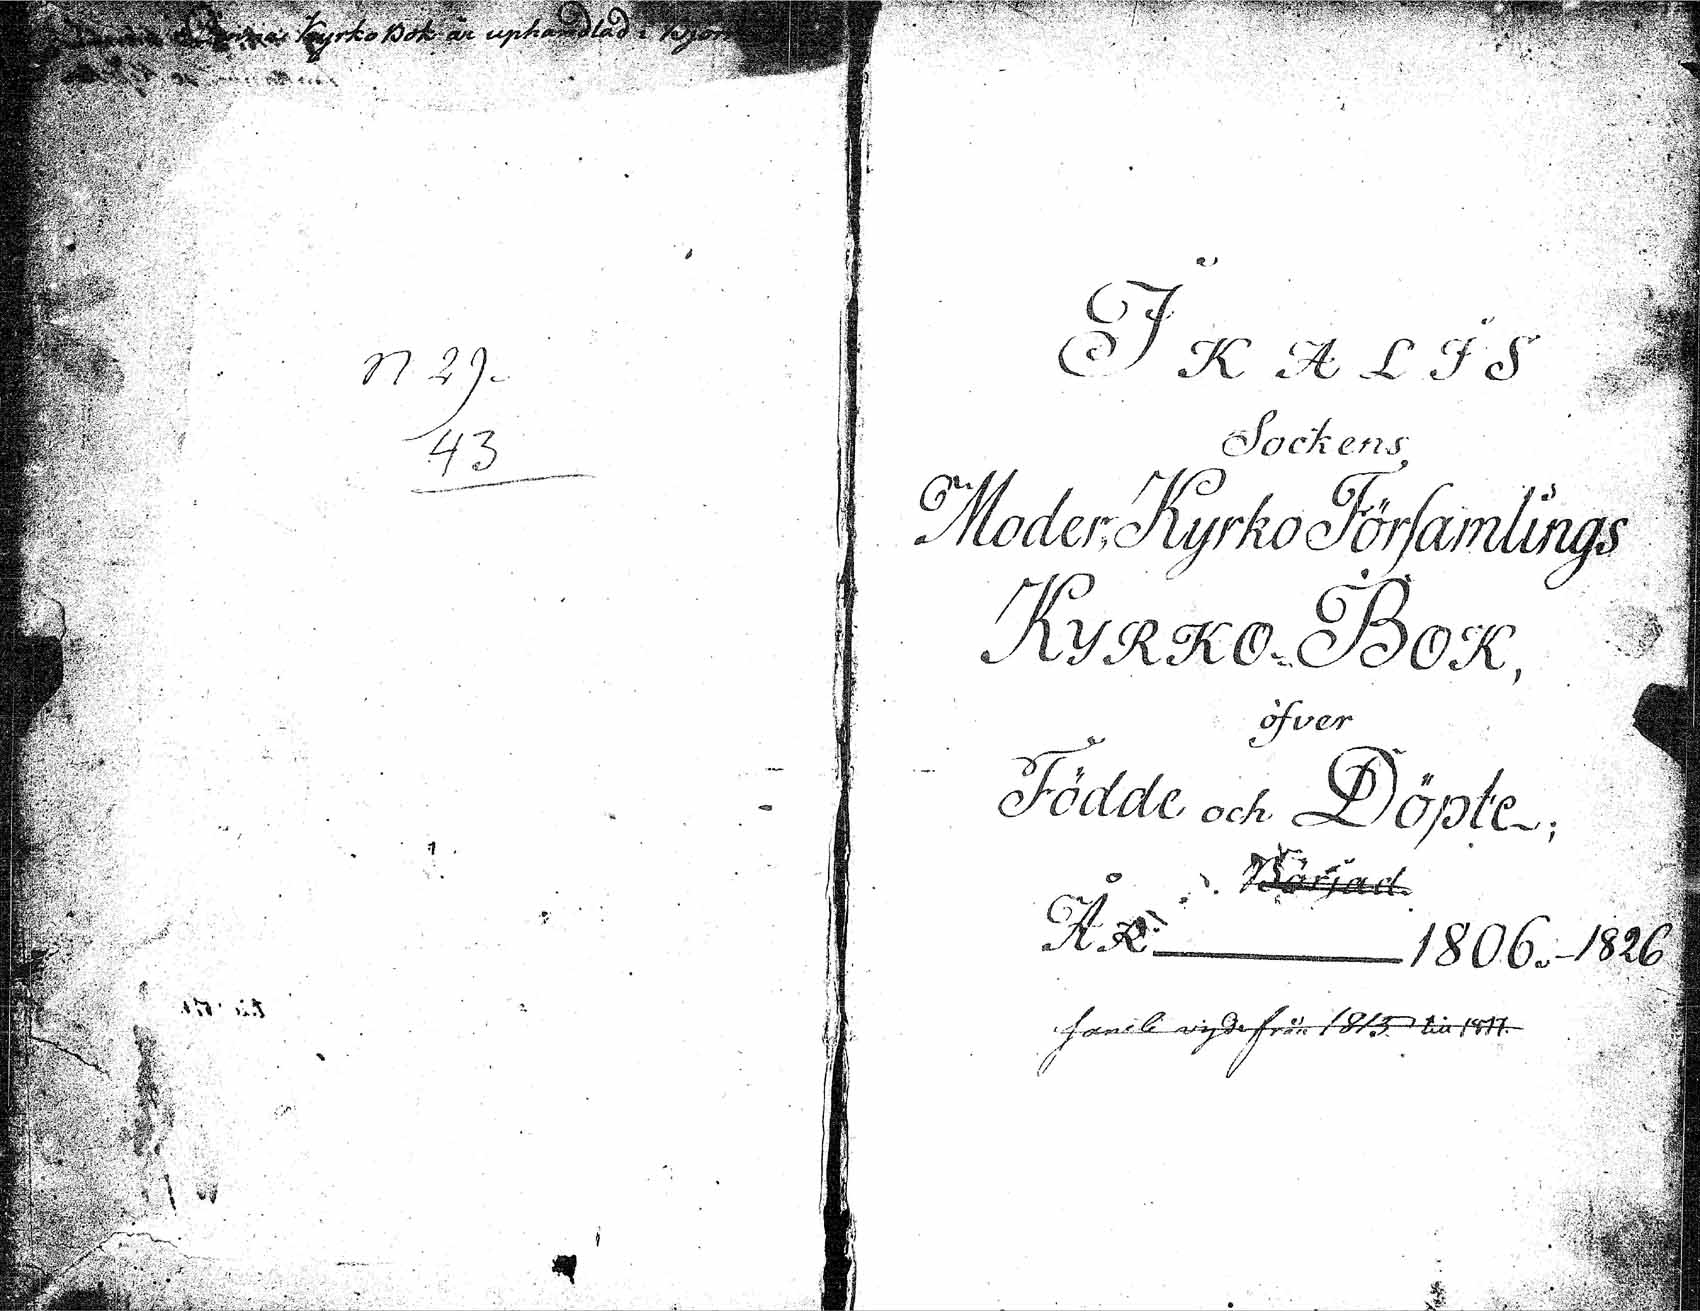 Denna Kyrko Bok är uphandlad i Björn
N 29.
43
IKALIS
Sockens
Moder-Kyrko Församlings
KYRKO-BOK,
öfver
Födde och Döpte,;
Börjad.
ÅR 1806.-1826
samt vigde från 1813 till 1811.